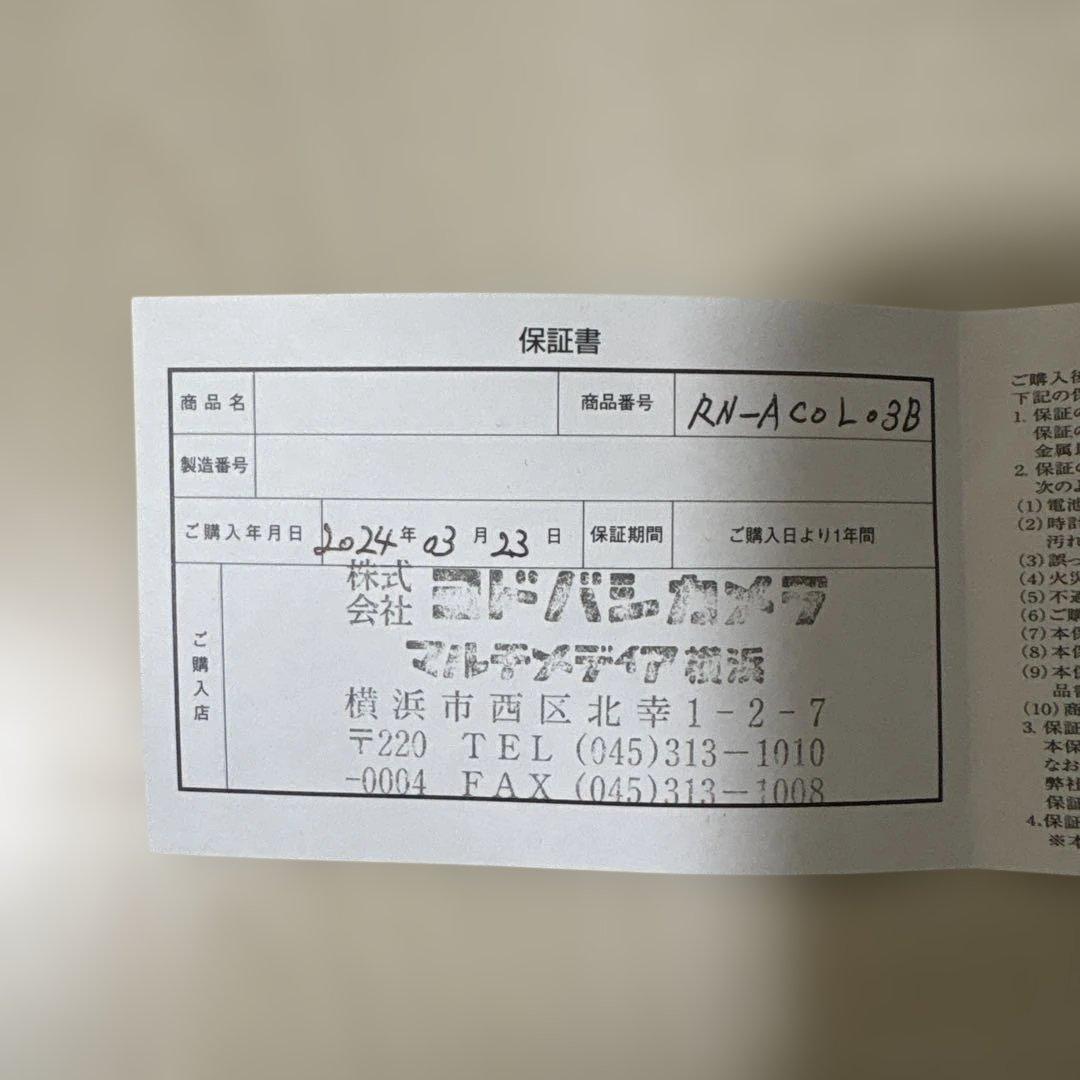 保証書
商品名
商品番号 RN-AC0L03B
製造番号
ご購入年月日 2024年 03 月 23 日 保証期間 ご購入日より1年間
ご購入店
株式会社 ヨドバシカメラ
マルチメディア横浜
横浜市西区北幸1-2-7
〒220 TEL (045)313-1010
-0004 FAX (045)313-1008
ご購入後
下記の保
1. 保証の
保証の
金属
2. 保証の
次のよ
(1) 電池
(2) 時計
汚れ
(3) 誤っ
(4) 火災
(5) 不適
(6) ご購
(7) 本保
(8) 本保
(9) 本体
品
(10) 商
3. 保証
本保
なお
弊社
保証
4. 保証
※本